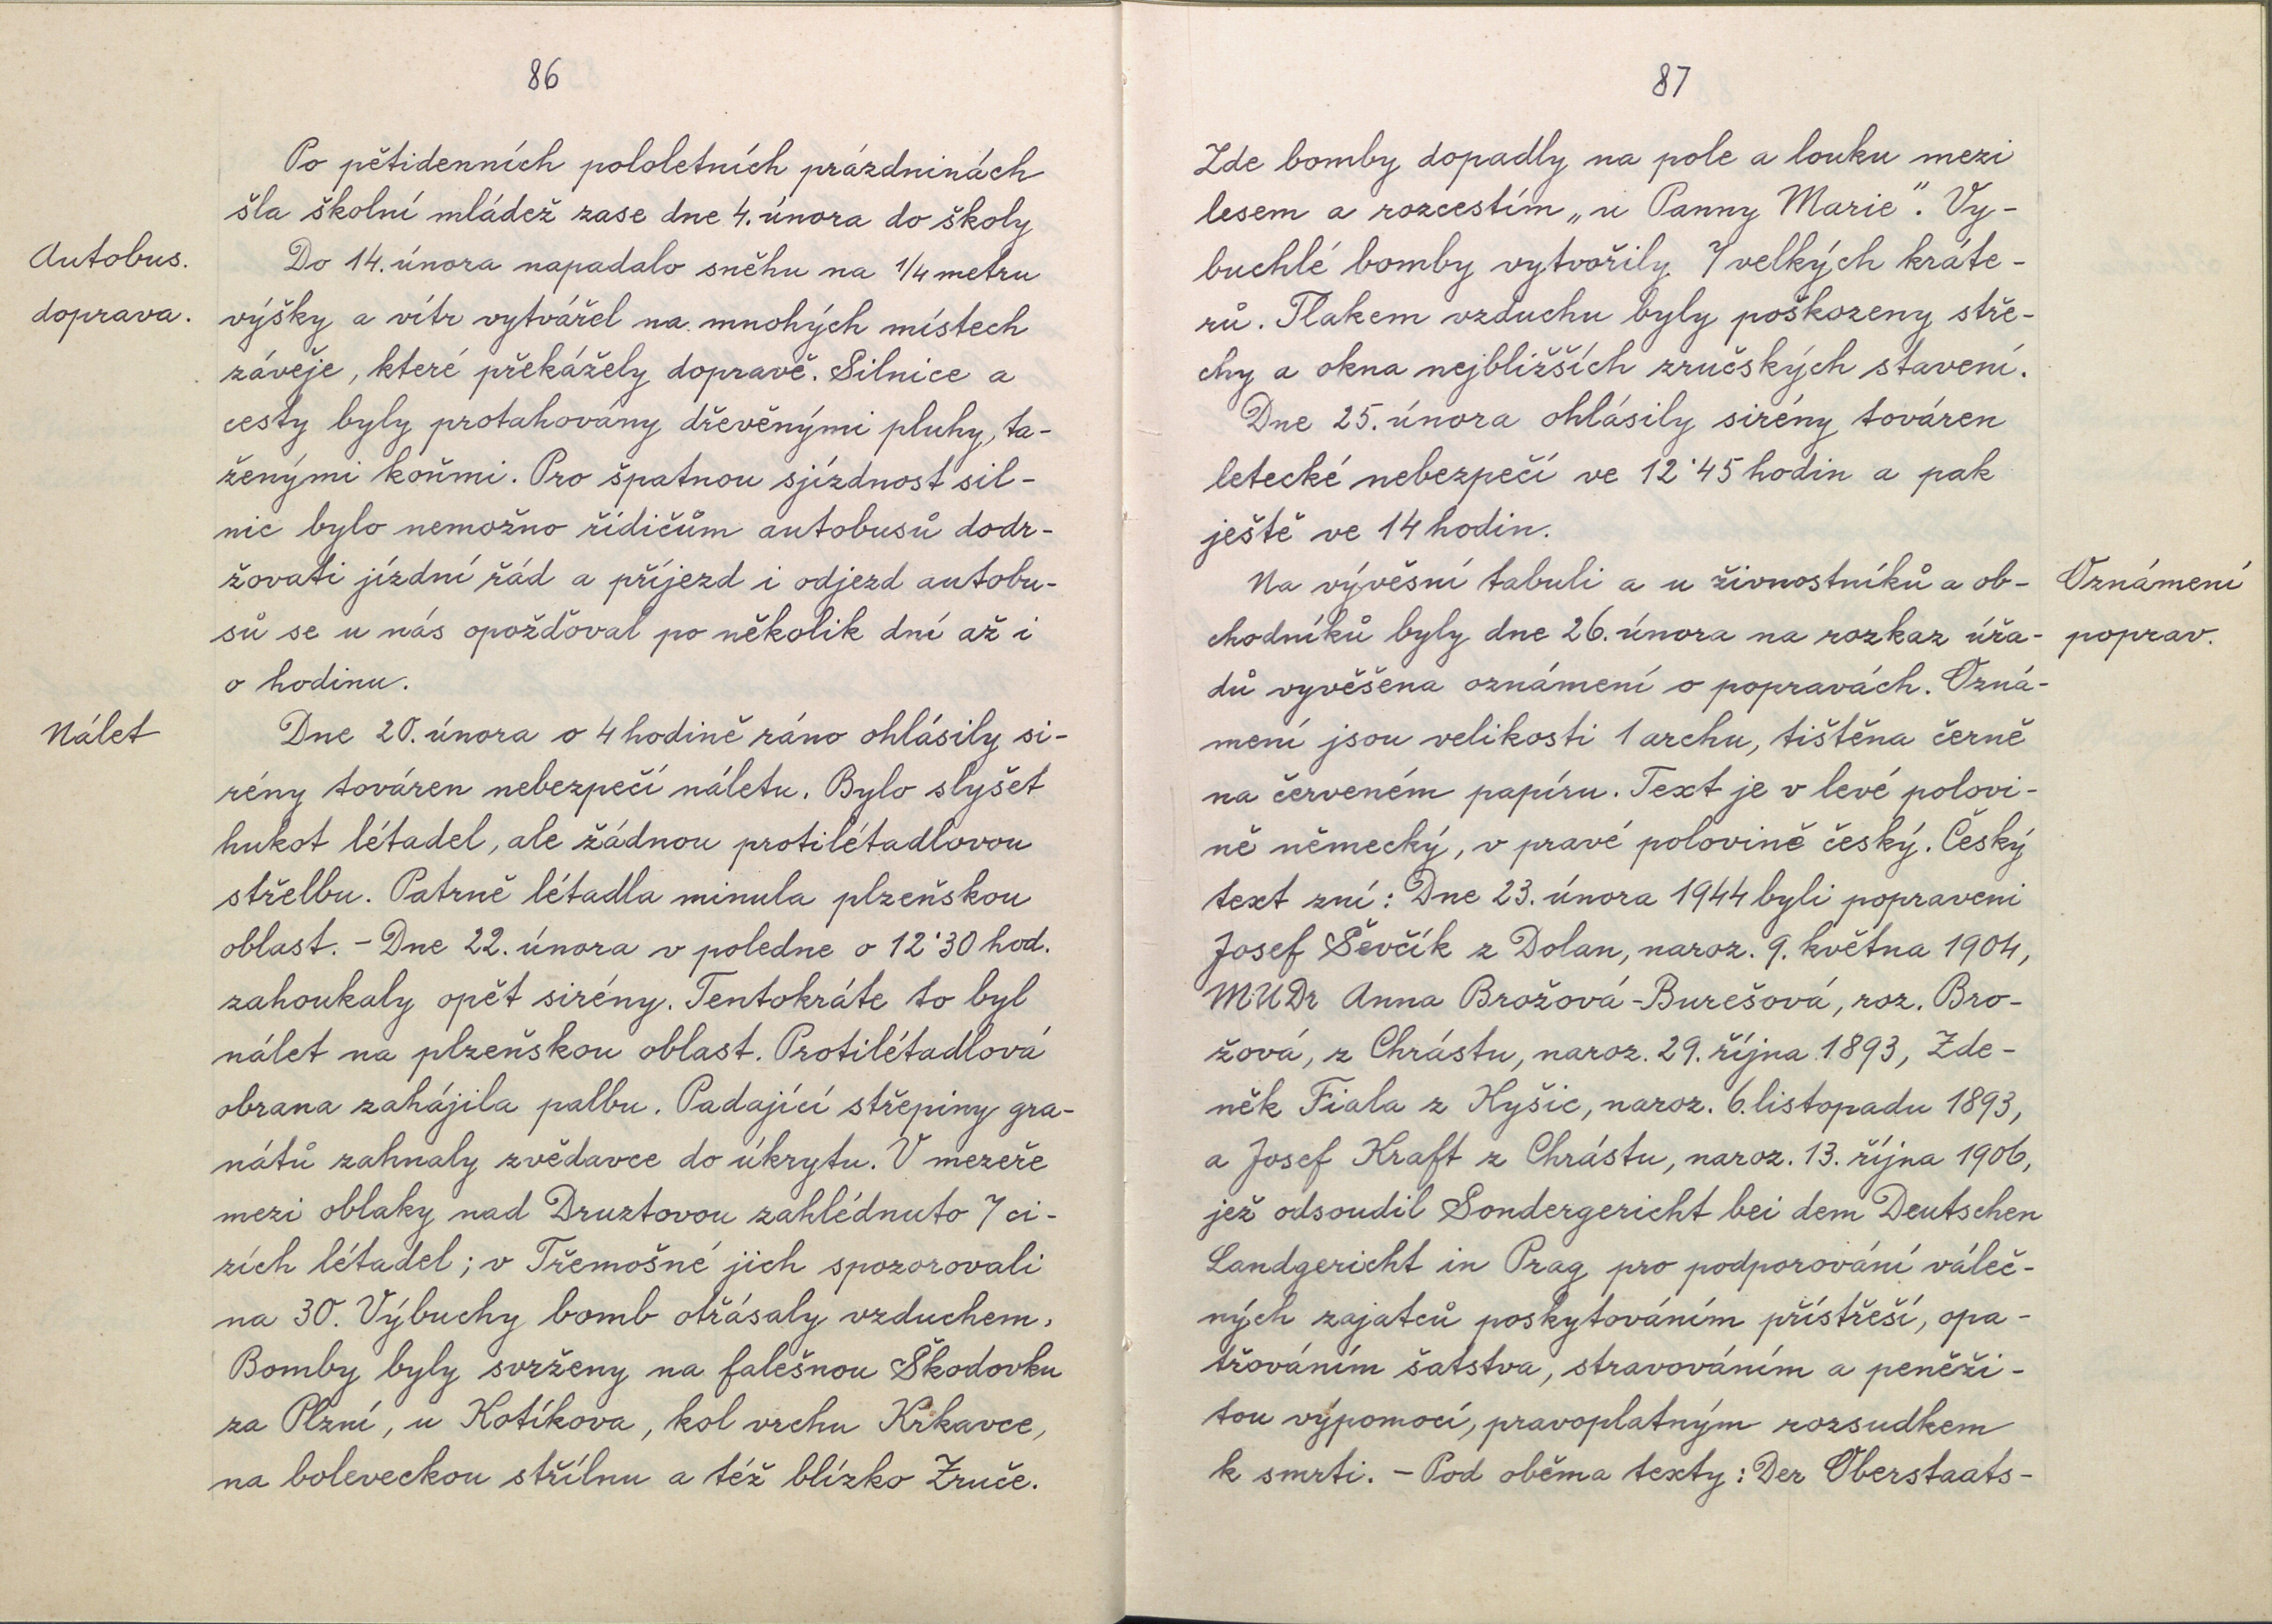 86
Po pětidenních pololetních prázdninách
šla školní mládež zase dne 4. února do školy
Autobus.
doprava.
Do 14. února napadalo sněhu na 1/4 metru
výšky a vítr vytvářel na mnohých místech
závěje, které překážely dopravě. Silnice a
cesty byly protahovány dřevěnými pluhy, ta-
ženými koňmi. Pro špatnou sjízdnost sil-
nic bylo nemožno řidičům autobusů dodr-
žovati jízdní řád a příjezd i odjezd autobu-
sů se u nás opožďoval po několik dní až i
o hodinu.
Nálet
Dne 20. února o 4 hodině ráno ohlásily si-
rény továren nebezpečí náletu. Bylo slyšet
hukot létadel, ale žádnou protilétadlovou
střelbu. Patrně létadla minula plzeňskou
oblast. - Dne 22. února v poledne o 12˙30 hod.
zahoukaly opět sirény. Tentokráte to byl
nálet na plzeňskou oblast. Protilétadlová
obrana zahájila palbu. Padající střepiny gra-
nátů zahnaly zvědavce do úkrytu. V mezeře
mezi oblaky nad Druztovou zahlédnuto 7 ci-
zích létadel; v Třemošné jich spozorovali
na 30. Výbuchy bomb otřásaly vzduchem.
Bomby byly svrženy na falešnou Škodovku
za Plzní, u Kotíkova, kol vrchu Krkavce,
na boleveckou střílnu a též blízko Zruče.
87
Zde bomby dopadly na pole a louku mezi
lesem a rozcestím „u Panny Marie". Vy-
buchlé bomby vytvořily 7 velkých kráte-
rů. Tlakem vzduchu byly poškozeny stře-
chy a okna nejbližších zručských stavení.
Dne 25. února ohlásily sirény továren
letecké nebezpečí ve 12˙45 hodin a pak
ještě ve 14 hodin.
Oznámení
poprav.
Na vývěsní tabuli a u živnostníků a ob-
chodníků byly dne 26. února na rozkaz úřa-
dů vyvěšena oznámení o popravách. Ozná-
mení jsou velikosti 1 archu, tištěna černě
na červeném papíru. Text je v levé polovi-
ně německý, v pravé polovině český. Český
text zní: Dne 23. února 1944 byli popraveni
Josef Ševčík z Dolan, naroz. 9. května 1904,
MUDr Anna Brožová-Burešová, roz. Bro-
žová, z Chrástu, naroz. 29. října 1893, Zde-
něk Fiala z Kyšic, naroz. 6. listopadu 1893,
a Josef Kraft z Chrástu, naroz. 13. října 1906,
jež odsoudil Sondergericht bei dem Deutschen
Landgericht in Prag pro podporování váleč-
ných zajatců poskytováním přístřeší, opa-
třováním šatstva, stravováním a peněži-
tou výpomocí, pravoplatným rozsudkem
k smrti. - Pod oběma texty: Der Oberstaats-